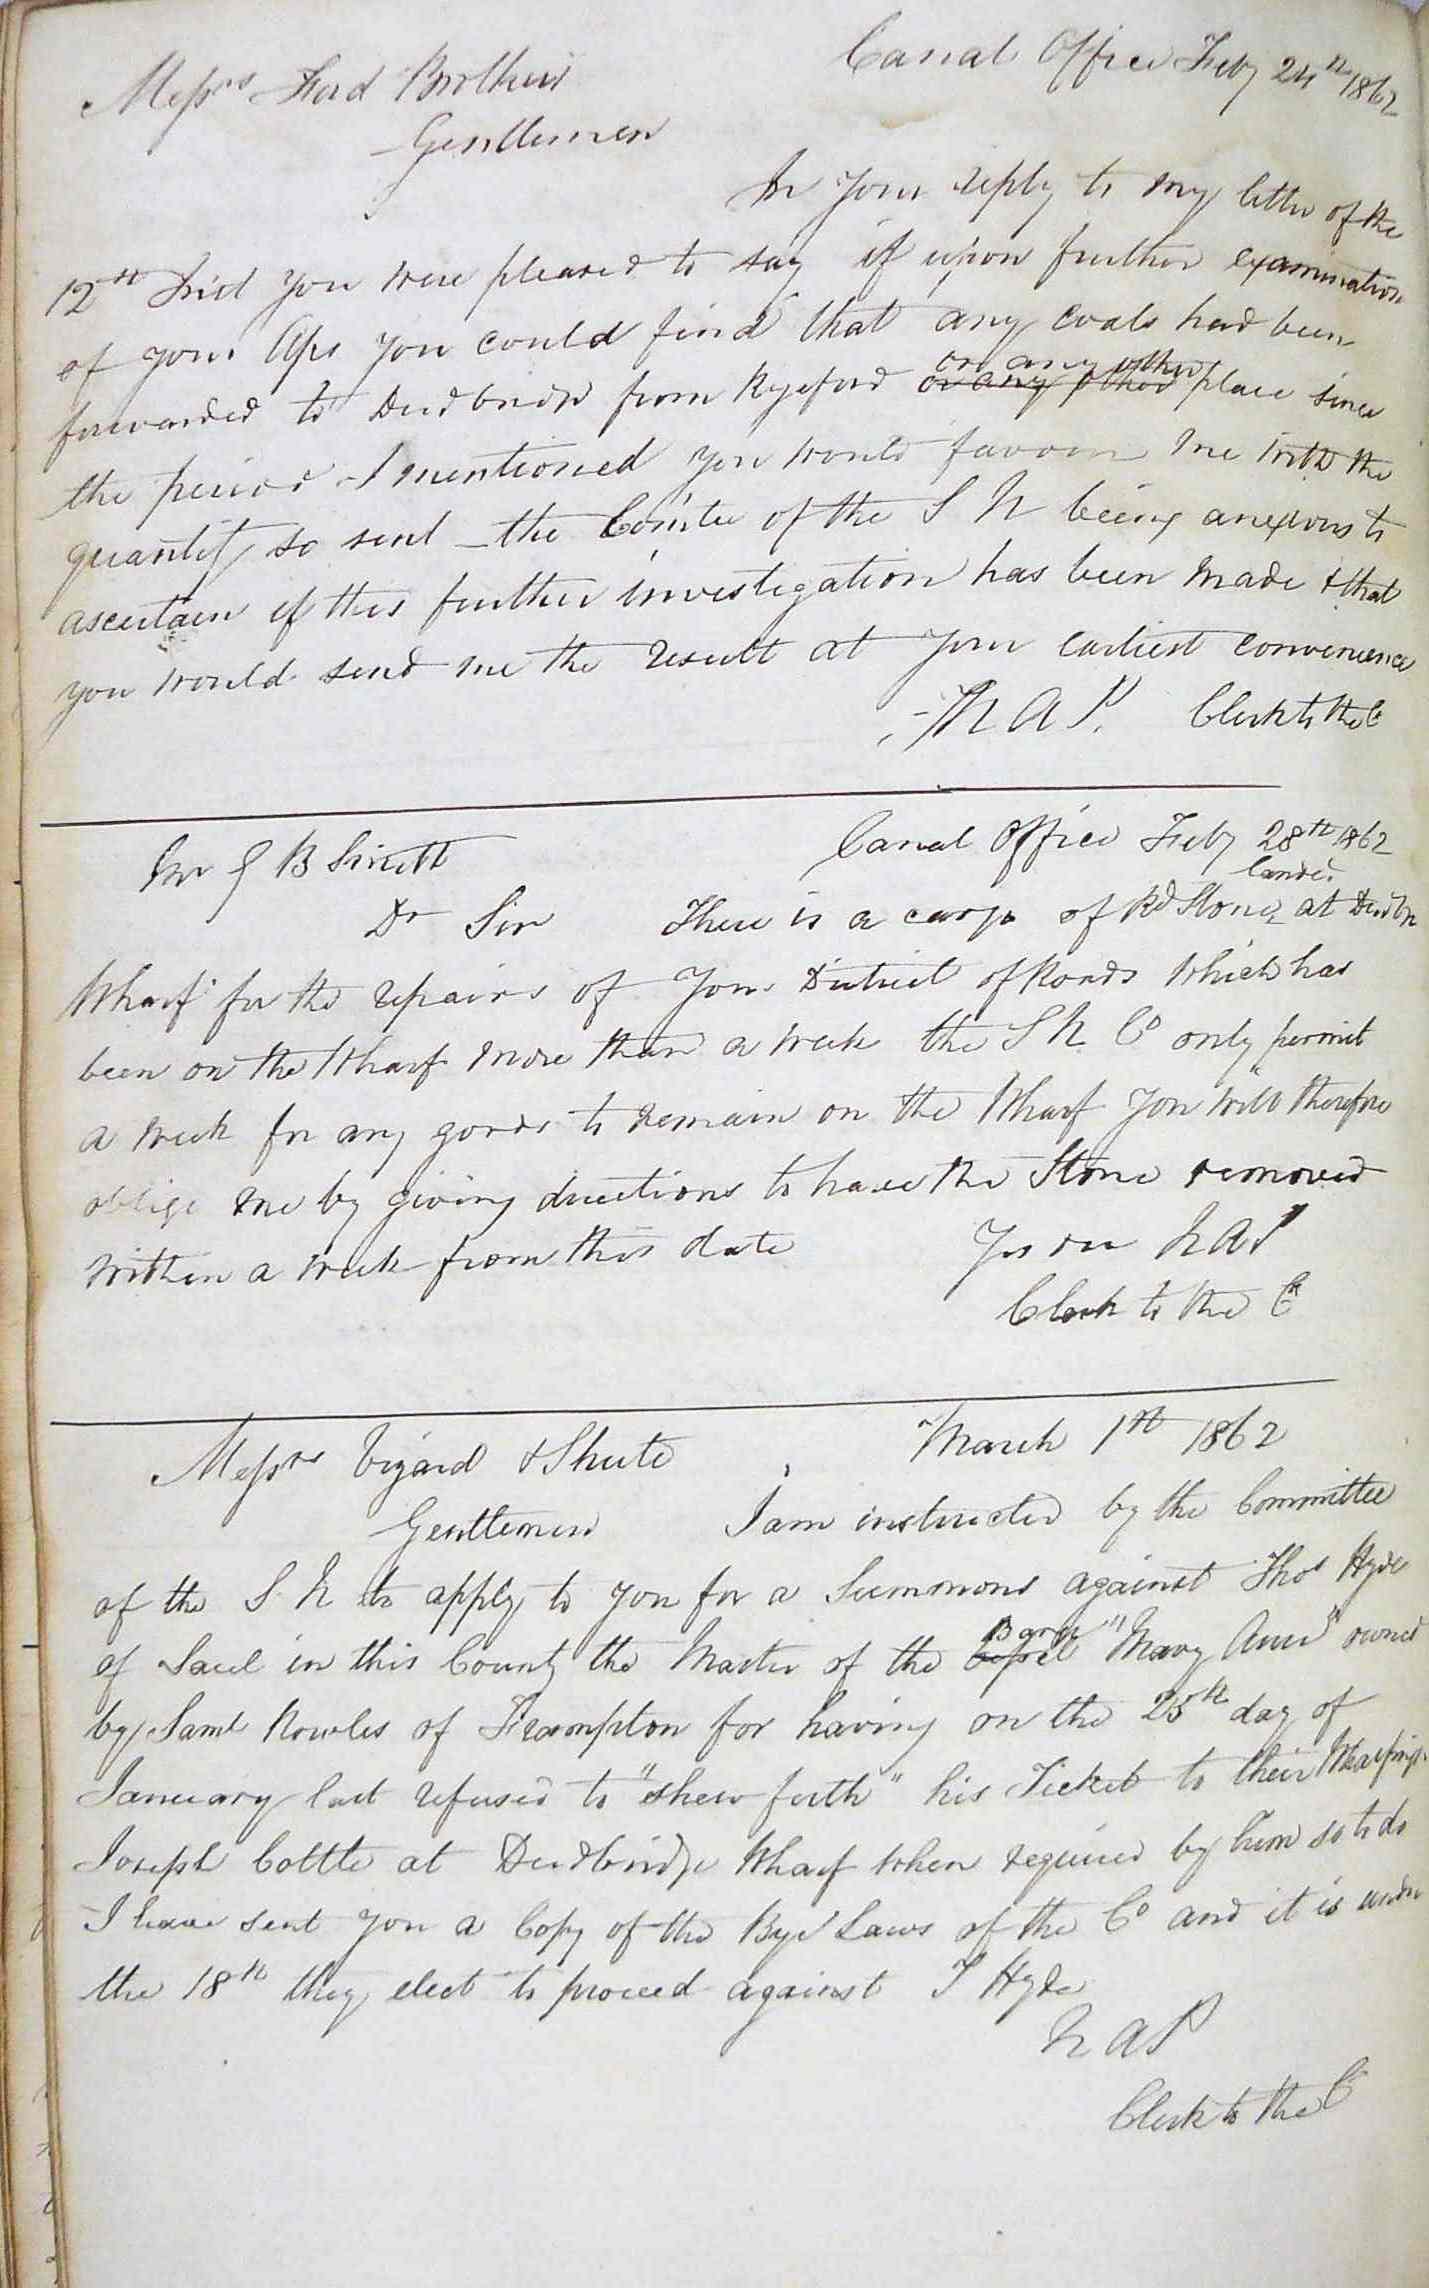 Canal Office Feby 24th 1862
Messrs Ford Brothers
Gentlemen
In your reply to my letter of the
12th Inst you were pleased to say if upon further examination
of your Aps you could find that any coals had been
forwarded to Dudbridge from Ryeford or any other or any other place since
the period I mentioned you would favour me with the
quantity so sent - the Comtee of the S N being anexious to
ascertain if this further investigation has been made & that
you would send me the result at your earliest convenience
W A S. Clerk to the Co
Canal Office Feby 28th 1862
Mr G B Smith
landed
Dr Sir There is a cargo of Rd Stone at Dudbr
Wharf for the repairs of your District of Roads which has
been on the Wharf more than a week the S N Co only permit
a week for any goods to remain on the Wharf you will therefore
oblige me by giving directions to have the Stone removed
within a week from this date Yrs
Clerk to the Co
Messrs Vizard & Shute March 1st 1862
Gentlemen I am instructed by the Committee
of the S. N to apply to you for a Summons against Thos Hyde
of Saul in this County the Master of the vessel Barge "Mary Ann" owned
by Saml Rowles of Frampton for having on the 25th day of
January last refused to "shew forth" his Ticket to their Wharfingr
Joseph Cottle at Dudbridge Wharf when required by him so to do
I have sent you a Copy of the Bye Laws of the Co and it is under
the 18th they elect to proceed against T Hyde
W A S
Clerk to the Co